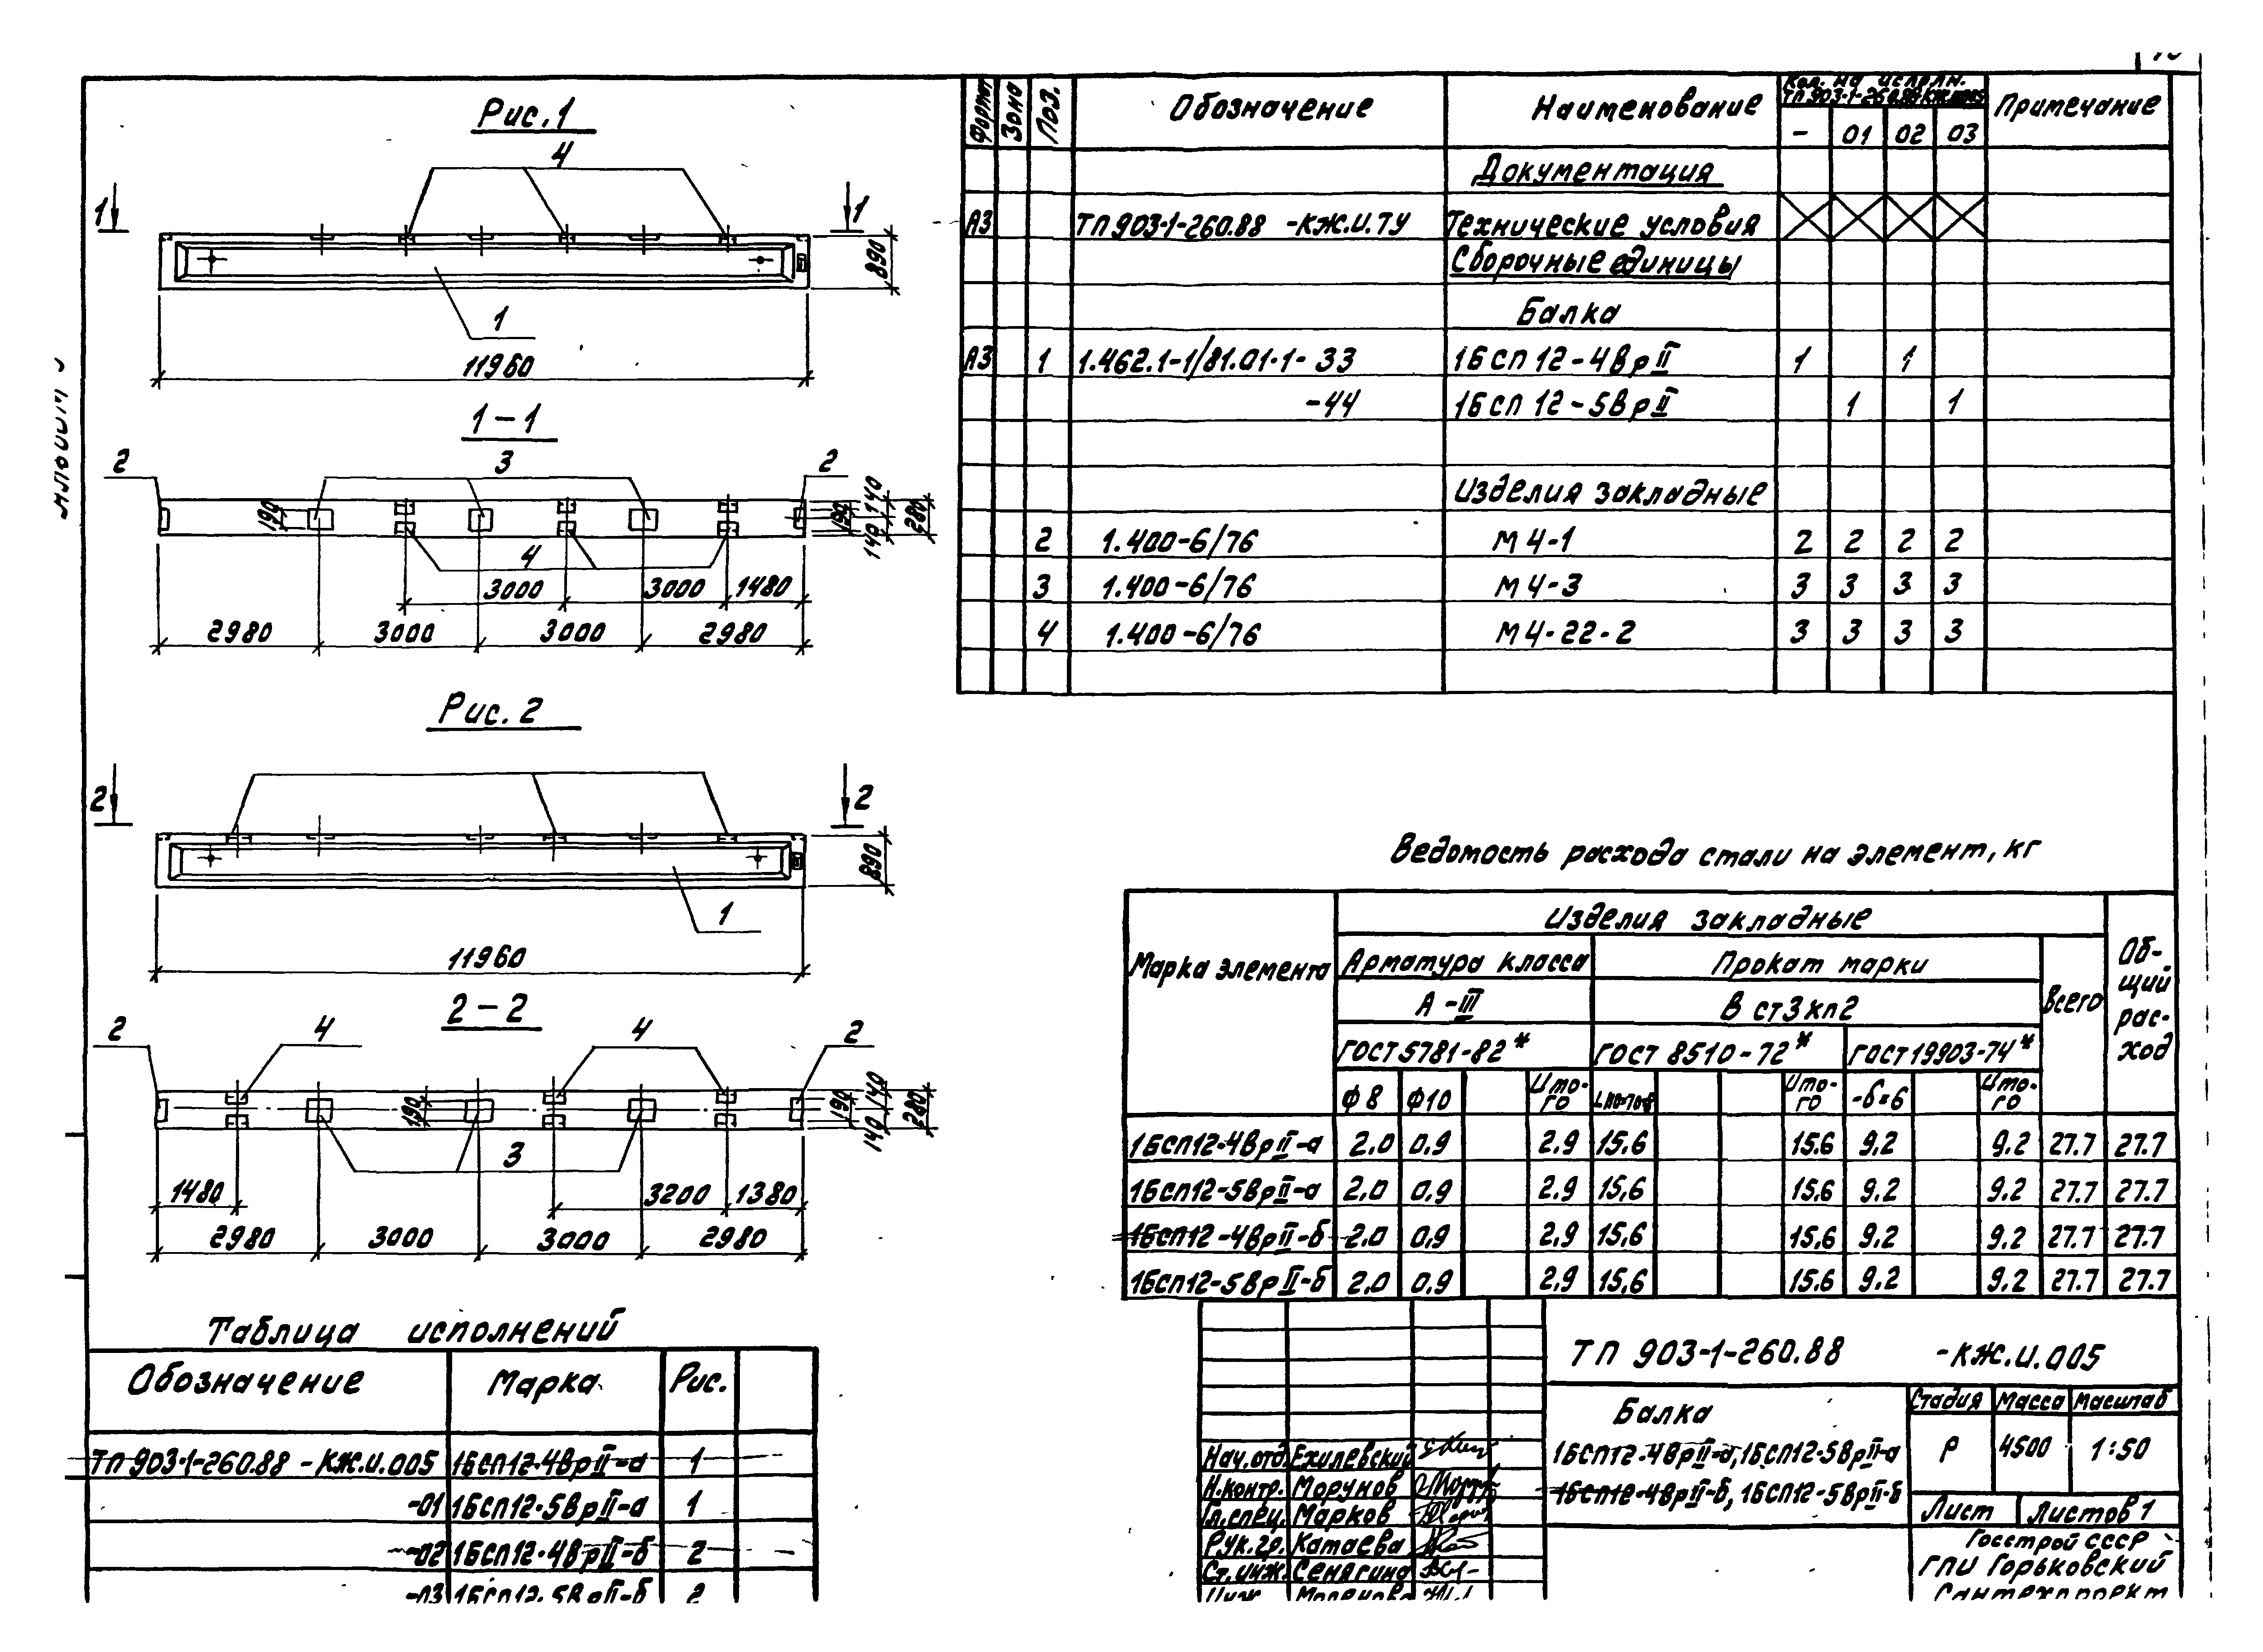 Рис.1
4
1 1
890
1
11960
1-1
2 3 2
190 190 140 140 280
4
3000 3000 1480
2980 3000 3000 2980
Рис. 2
2 2
890
1
11960
2-2
2 4 4 2
190 190 140 140 280
3
1480 3200 1380
2980 3000 3000 2980
Таблица исполнений
Обозначение Марка Рис.
ТП 903-1-260.88 -КЖ.И.005 1БСП12-4ВрII-а 1
-01 1БСП12-5ВрII-а 1
-02 1БСП12-4ВрII-б 2
-03 1БСП12-5ВрII-б 2
Формат Зона Поз. Обозначение Наименование Кол. на исполн. Примечание
ТП 903-1-260.88 КЖ.И.005
- 01 02 03
Документация
А3 ТП 903-1-260.88 -КЖ.И.ТУ Технические условия
Сборочные единицы
Балка
А3 1 1.462.1-1/81.01-1-33 1БСП 12-4ВрII 1 1
-44 1БСП 12-5ВрII 1 1
Изделия закладные
2 1.400-6/76 М 4-1 2 2 2 2
3 1.400-6/76 М 4-3 3 3 3 3
4 1.400-6/76 М 4-22-2 3 3 3 3
Ведомость расхода стали на элемент, кг
Марка элемента Изделия закладные Общий расход
Арматура класса Прокат марки Всего
А-III В ст3кп2
ГОСТ 5781-82* ГОСТ 8510-72* ГОСТ 19903-74*
Ф8 Ф10 Итого Итого -δ=6 Итого
1БСП12-4ВрII-а 2.0 0.9 2.9 15.6 15.6 9.2 9.2 27.7 27.7
1БСП12-5ВрII-а 2.0 0.9 2.9 15.6 15.6 9.2 9.2 27.7 27.7
1БСП12-4ВрII-б 2.0 0.9 2.9 15.6 15.6 9.2 9.2 27.7 27.7
1БСП12-5ВрII-б 2.0 0.9 2.9 15.6 15.6 9.2 9.2 27.7 27.7
ТП 903-1-260.88 -КЖ.И.005
Балка
1БСП12-4ВрII-а, 1БСП12-5ВрII-а
1БСП12-4ВрII-б, 1БСП12-5ВрII-б
Стадия Масса Масштаб
Р 4500 1:50
Лист Листов 1
Госстрой СССР
ГПИ Горьковский
Сантехпроект
Нач.отд. Ехилевский
Н.контр. Морунов
Гл.спец. Марков
Рук.гр. Катаева
Ст.инж. Сенягина
Инж.